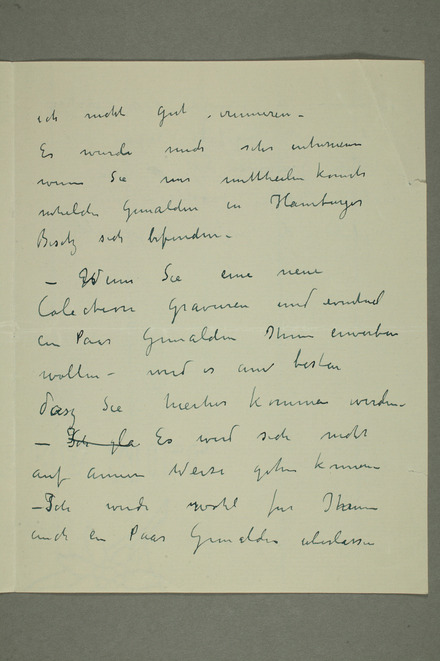 ich nicht gut erinneren -
Es wurde mich sehr interessieren
wenn Sie uns mittheilen konnte
welche Gemalden in Hamburger
Besitz sich befinden -
- Wenn Sie eine neue
Colection Gravuren und eventuel
ein Paar Gemalden Ihnen erwerben
wollen - wird es am besten
dasz Sie hierher kommen werden -
- Ich gla Es wird sich nicht
auf andere Weise gehen konnen
- Ich wurde wohl fur Ihnen
auch ein Paar Gemalden uberlassen